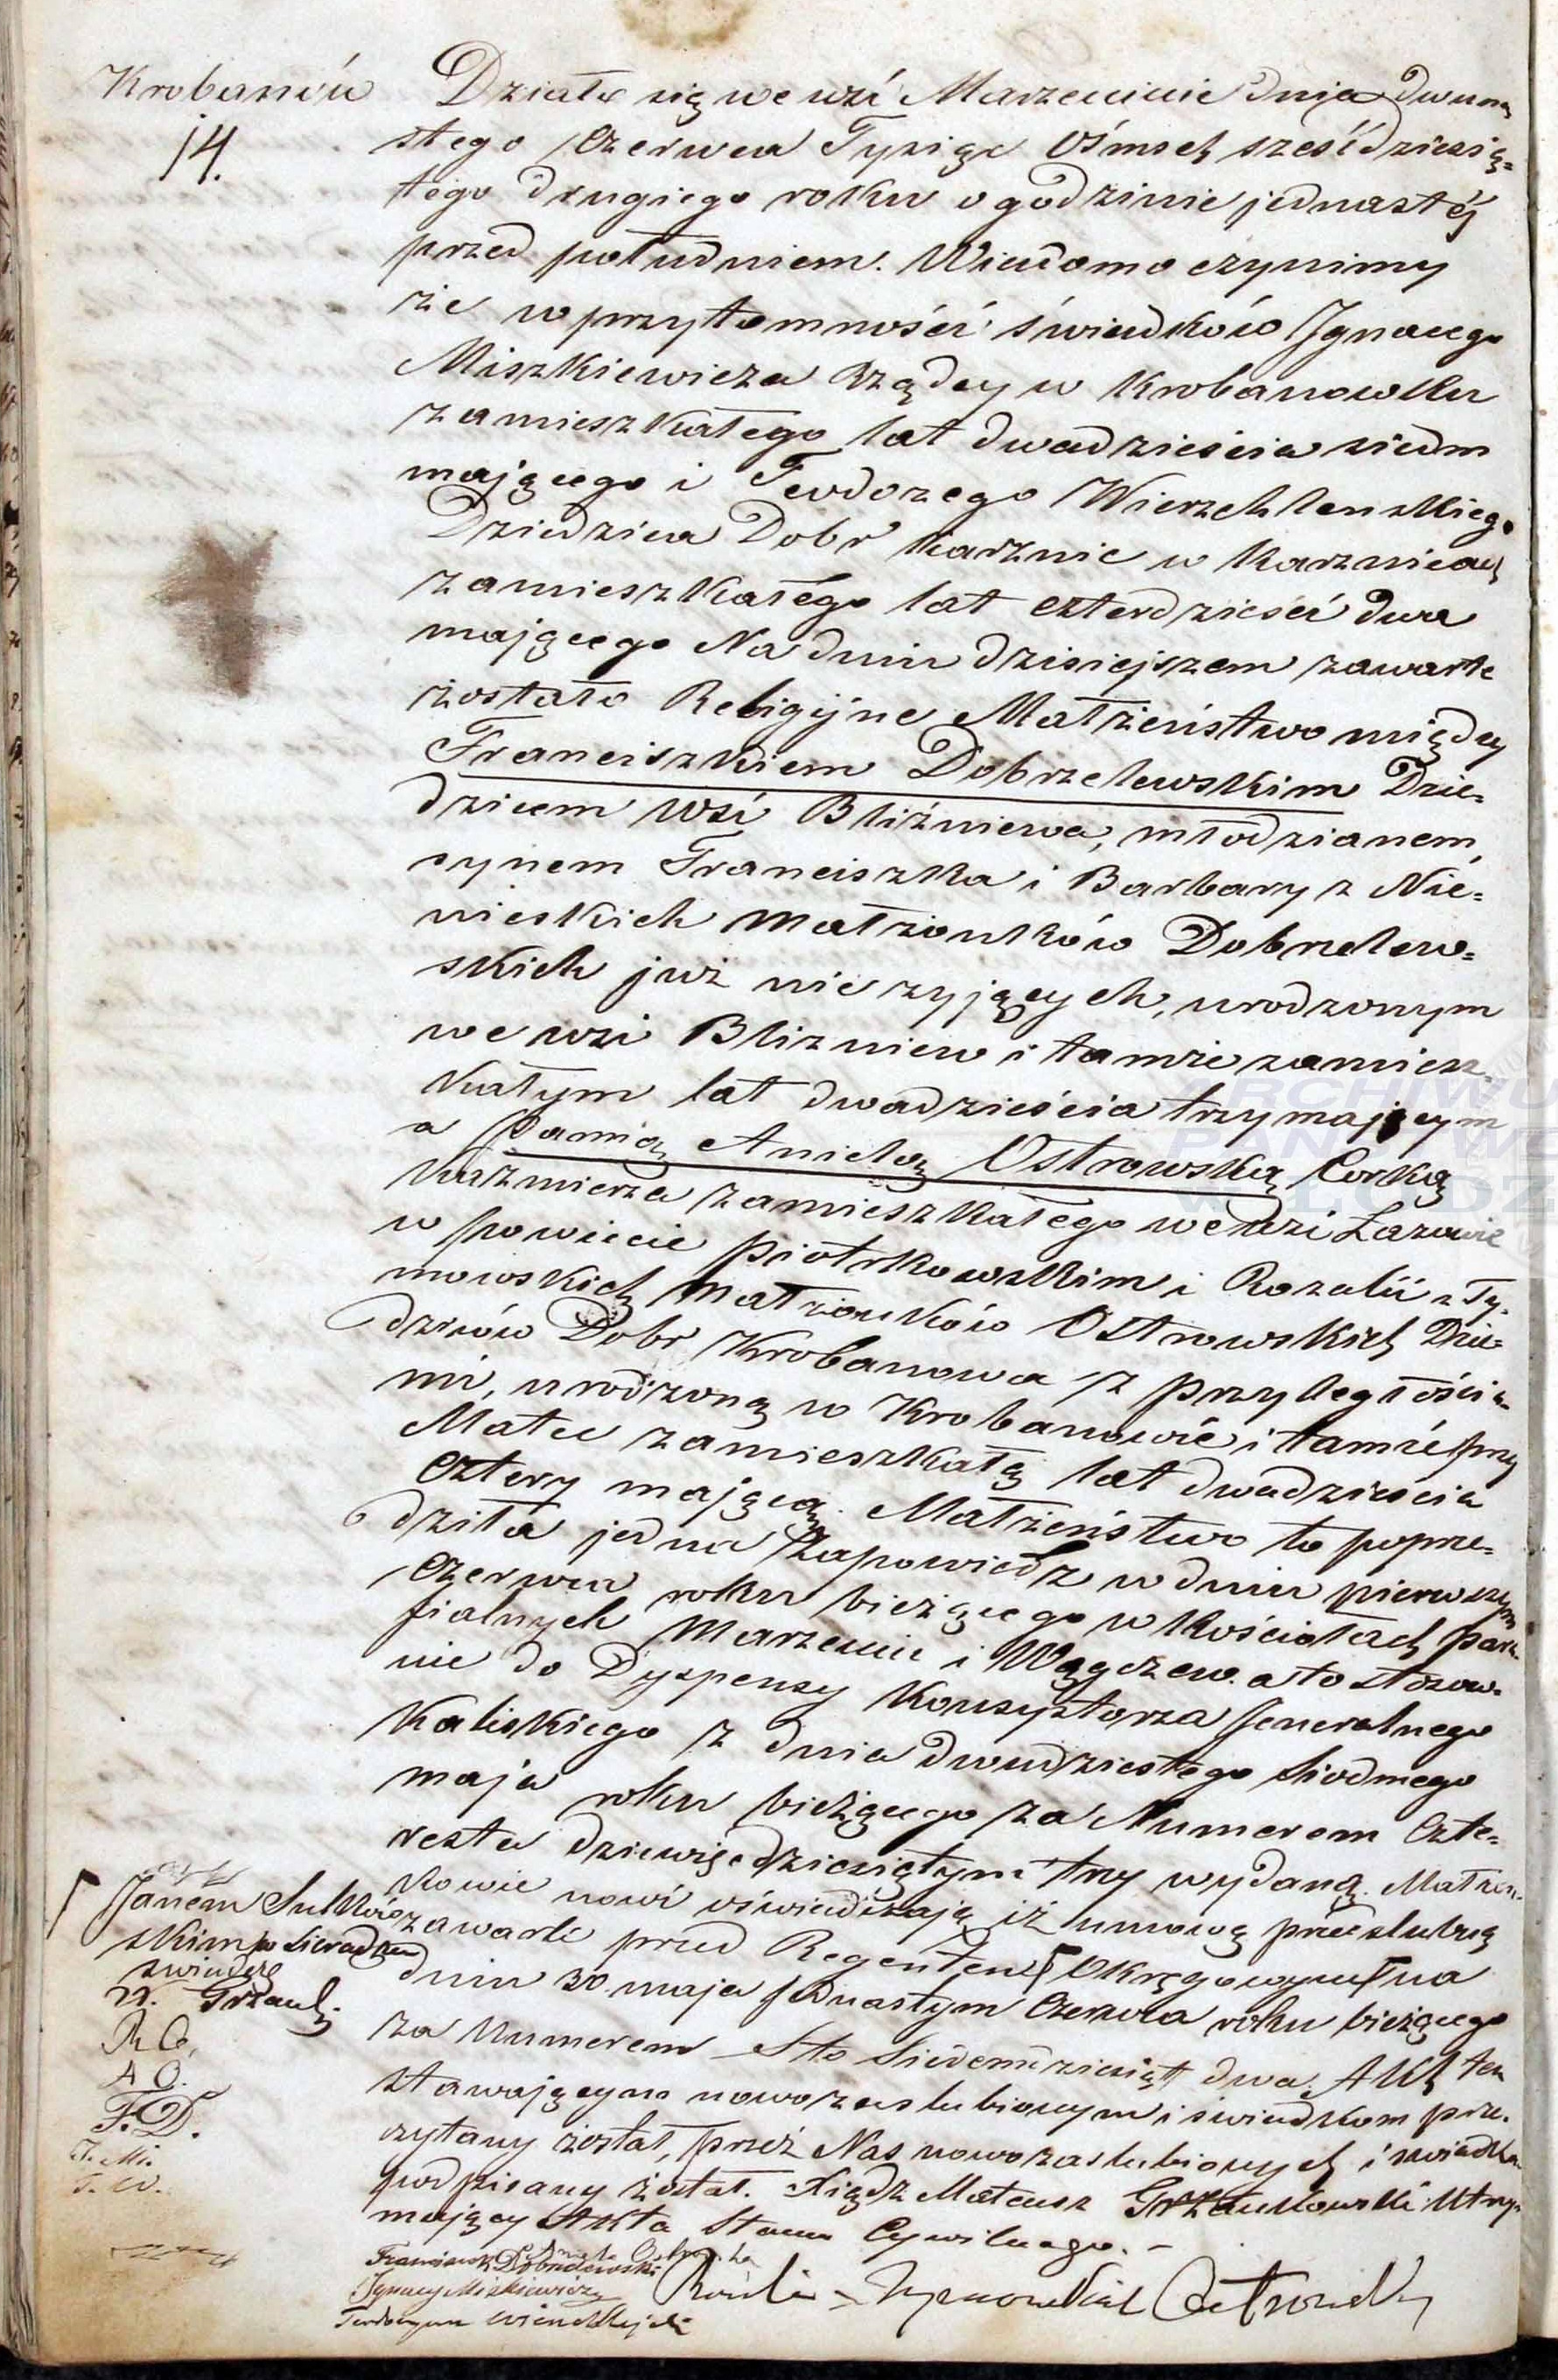 Krobanów
14.
Działo się we wsi Marzeninie dnia dwuna
stego Czerwca Tysiąc Ośmset sześćdziesią=
tego drugiego roku o godzinie jednastéj
przed południem. Wiadomo czynimy
że w przytomności świadków Ignacego
Miszkiewicza Rządcy w Krobanowku
zamieszkałego lat dwadzieścia siedm
mającego i Teodozego Wierzchleyskiego
Dziedzica Dobr Karznic w Karznicach
zamieszkałego lat czterdzieści dwa
mającego Na dniu dzisiejszem zawarte
zostało Religijne Małżeństwo między
Franciszkiem Dobrzelewskim Dzie=
dzicem wsi Bliźniewa, młodzianem,
synem Franciszka i Barbary z Nie=
nieskich małżonków Dobrzelew=
skich już nie żyjących, urodzonym
we wsi Blizniew i tamże zamiesz=
kałym lat dwadzieścia trzy mającym
a Panią Anielą Ostrowską Corką
Kazmierza zamieszkałego we wsi Łazowie
w powiecie Piotrkowskim i Rozalii z Ty=
mowskich małżonków Ostrowskich Dzie=
dziców Dobr Krobanowa z przyległościa=
mi, urodzoną w Krobanowie i tamże przy
Matce zamieszkałą lat dwadzieścia
cztery mającą. Małżeństwo to poprze=
dziła jedna Zapowiedź w dniu pierwszym
Czerwca roku bieżącego w Kościołach para=
fialnych Marzenin i Wągczew. a to stosow=
nie do Dyspensy Konsystorza Jeneralnego
Kaliskiego z dnia dwudziestego siodmego
maja roku bieżącego za Numerem Czte=
rysta dziewięćdziesiątym trzy wydaną. Małżon=
kowie nowi oświadczają iż umowę przedślubną
zawarli przed Regentem Okręgowym na
dniu 30. maja jednastym Czerwca roku bieżącego
za Numerem Sto Siedemdziesiąt dwa. Akt ten
stawającym nowozaslubionym i swiadkom prze=
czytany został, przez Nas nowozaslubionych i swiadków
podpisany został. Xiądz Mateusz Grzankowski Utrzy=
mujący Akta Stanu Cywilnego. –
Janem
skim w Sieradzu
swiadczę
X. Grzank.
R O,
A O.
F. D.
I. Mi.
T. W.
Aniela Ostrowska
Franciszek Dobrzelewski
Ignacy Miszkiewicz
Rozalia z Tymowskich Ostrowska